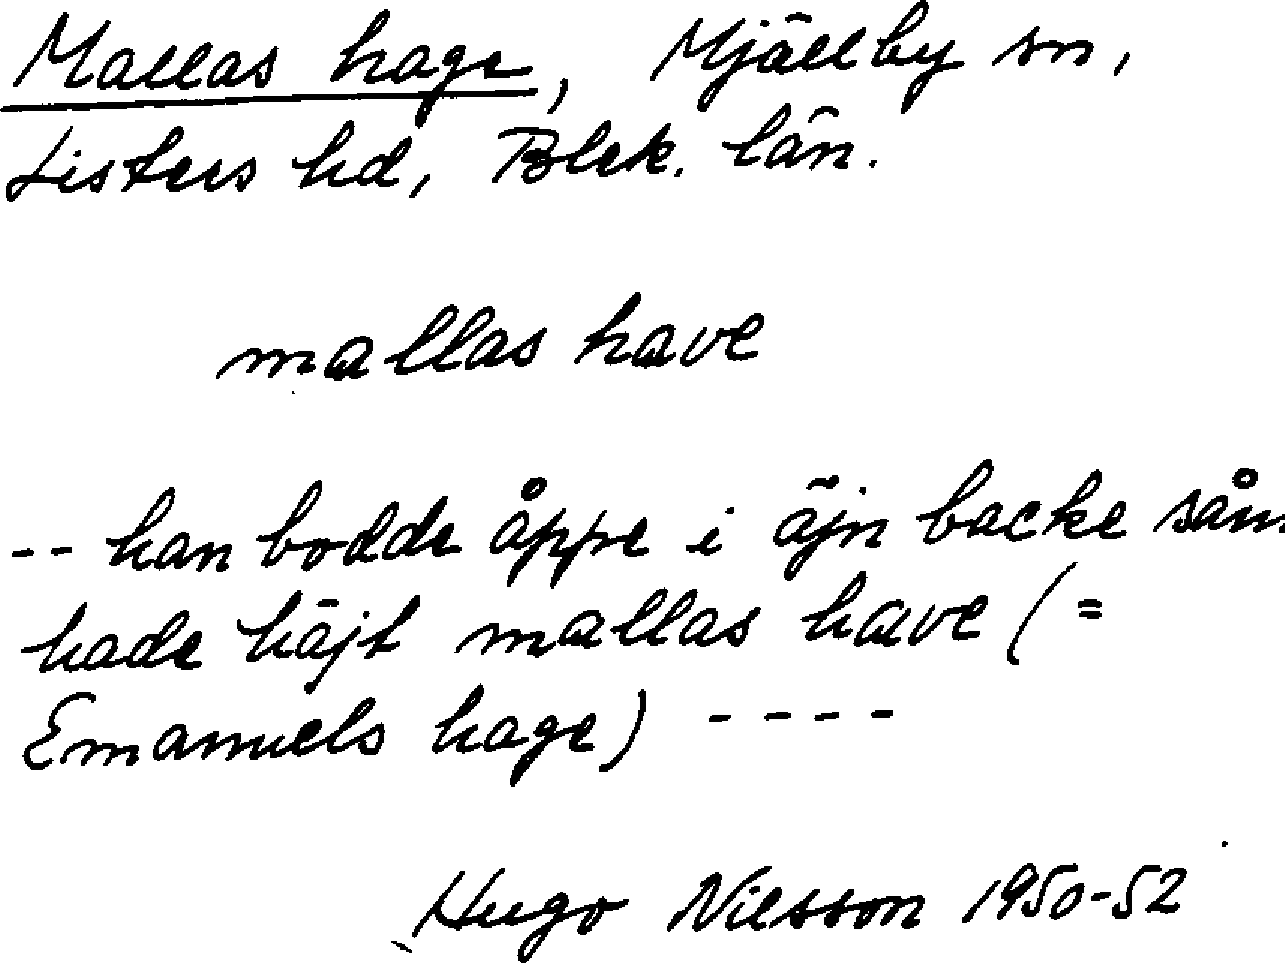 Mallas hage, Mjällby sn,
Listers hd, Blek. län.
mallas have
-- han bodde åppe i äjn backe såm
hade häjt mallas have (=
Emanuels hage) ----
Hugo Nilsson 1950-52